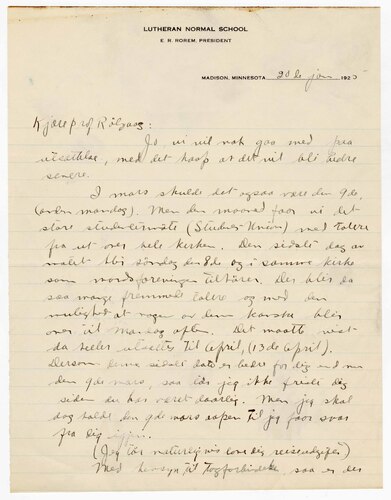 LUTHERAN NORMAL SCHOOL
E. R. ROREM, PRESIDENT
MADISON, MINNESOTA 20de jan 1925
Kjære prof Rölvaag:
Jo, vi vil nok gaa med paa
utsættelse, med det haap at det vil bli bedre
senere.
I mars skulde det ogsaa være den 9de,
(anden mandag). Men den maaned faar vi det
store studentermöte (Student Union) med talere
fra ut over hele kirken. Den sidste dag av
mötet blir söndag den 8de og i samme kirke
som nordforeningen tilhörer. Der blir da
saa mange fremmede talere og med den
mulighet at nogen av dem kanske blir
over til mandag aften. Det maatte nok
da heller utsættes til april, (13 de april).
Dersom denne sidste dato er bedre for dig end
den 9de mars, saa tör jeg ikke friste dig
siden du har været daarlig. Men jeg skal
dog holde den 9de mars aapen til jeg faar svar
fra dig igjen.
(Jeg tör naturligvis love dig reiseutgifter)
Med hensyn til togforbindelse, saa er der